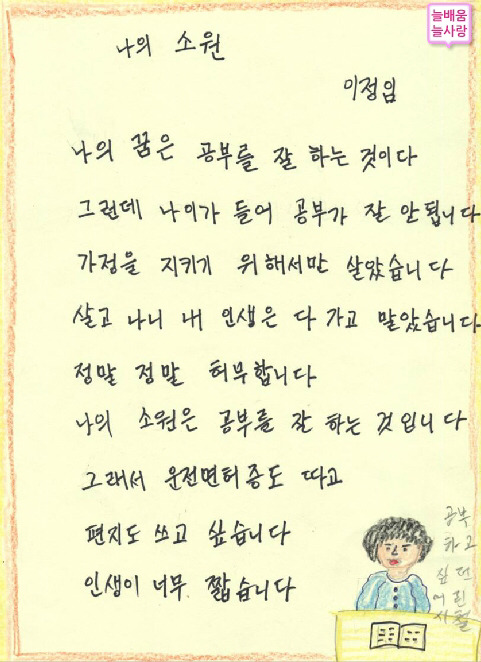 늘배움
늘사랑
나의 소원
이정임
나의 꿈은 공부를 잘 하는 것이다
그런데 나이가 들어 공부가 잘 안됩니다
가정을 지키기 위해서만 살았습니다
살고 나니 내 인생은 다 가고 말았습니다
정말 정말 허무합니다
나의 소원은 공부를 잘 하는 것입니다
그래서 운전면허증도 따고
편지도 쓰고 싶습니다
인생이 너무 짧습니다
공부
하고
싶던
어린
시절